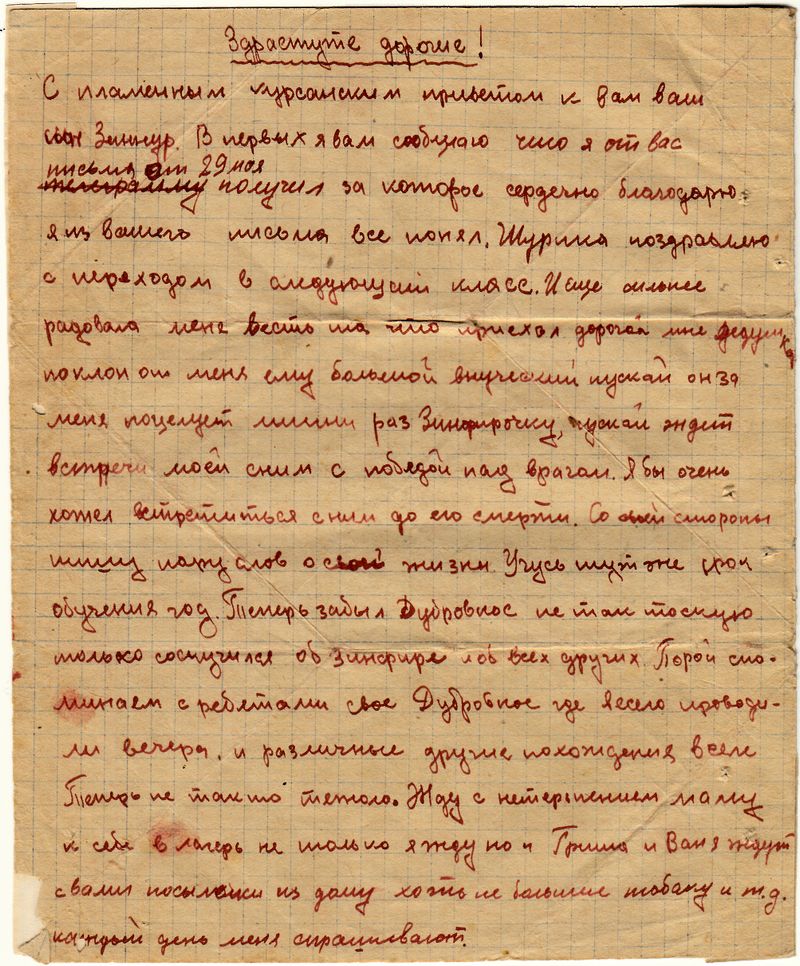 Здрастуте дорогие!
С пламенным курсанским приветом к вам ваш
сын Зиннур. В первых я вам сообщаю что я от вас
письмо от 29 мая
телеграмму получил за которое сердечно благодарю
я из вашего письма все понял. Шурика поздравляю
с переходом в следующий класс. И еще сильнее
радовала меня весть та что приехал дорогой мне дедушка
поклон от меня ему большой внуческий пускай он за
меня поцелует лишни раз Зинфирочку, пускай ждет
встречи моей сним с победой над врагам. Я бы очень
хотел встретиться с ним до его смерти. Со своей стороны
пишу пару слов о своей жизни. Учусь тут же срок
обучения год. Теперь забыл Дубровное не так тоскую
только соскучился об Зинфире и об всех других. Порой спо-
минаем с ребятами свое Дубровное где весело проводи-
ли вечера, и различные другие похождения в селе
Теперь не так то тяжоло. Жду с нетерпением маму
к себе в лагерь не только я жду но и Гриша и Ваня ждут
с вами посылочки из дому хоть не большие табаку и т.д.
каждый день меня спрашивают.